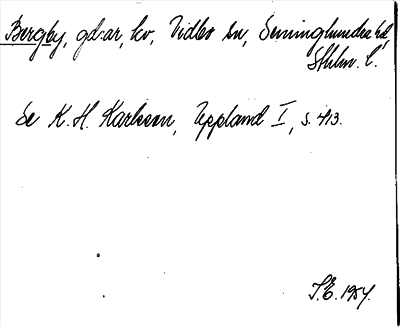 Bergby, gd:ar, kv, Vidbo sn, Seminghundra hd,
Sthlm. l.
Se K. H. Karlsson, Uppland I, s. 413.
S.E. 1954.